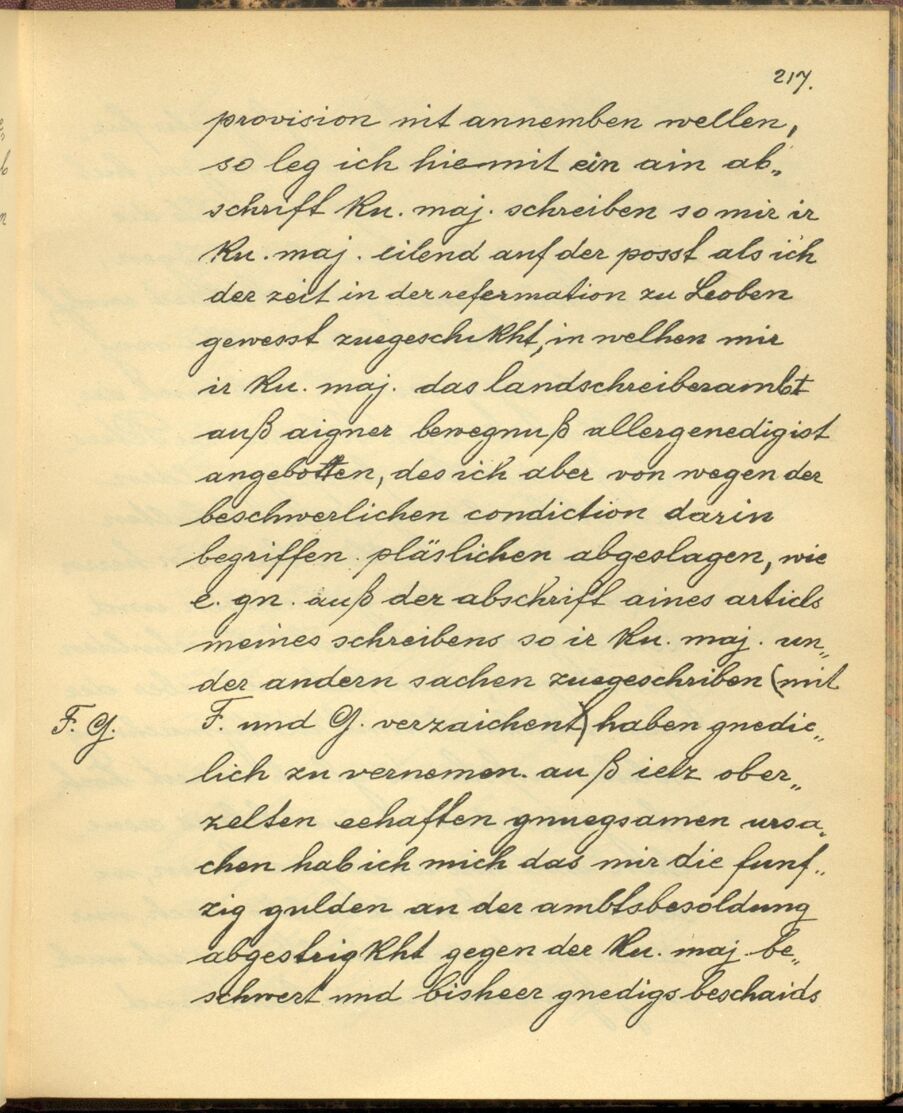 217.
provision nit annemben wellen,
so leg ich hiemit ein ain ab„
schrift Ku. maj. schreiben so mir ir
Ku. maj. eilend auf der posst als ich
der zeit in der refermation zu Leoben
gewesst zuegeschikht, in welhen mir
ir Ku. maj. das landschreiberambt
auß aigner bewegnuß allergenedigist
angebotten, des ich aber von wegen der
beschwerlichen condiction darin
begriffen pläslichen abgeslagen, wie
e. gn. auß der abschrift aines articls
meines schreibens so ir Ku. maj. un„
der andern sachen zuegeschriben (mit
F. G. F. und G. verzaichent) haben gnedic„
lich zu vernemen. auß ietz ober„
zelten eehaften gnuegsamen ursa„
chen hab ich mich das mir die funf„
zig gulden an der ambtsbesoldung
abgestrigkht gegen der Ku. maj. be„
schwert und bisheer gnedigs beschaids